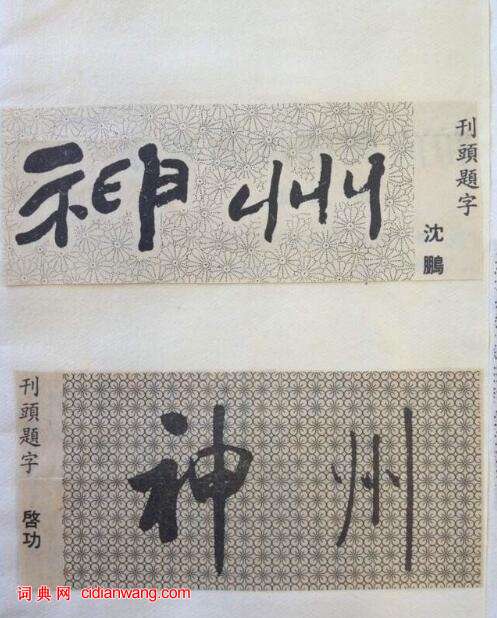 神州
刊頭題字
沈鵬
刊頭題字
啓功
神州
词典网 cidianwang.com